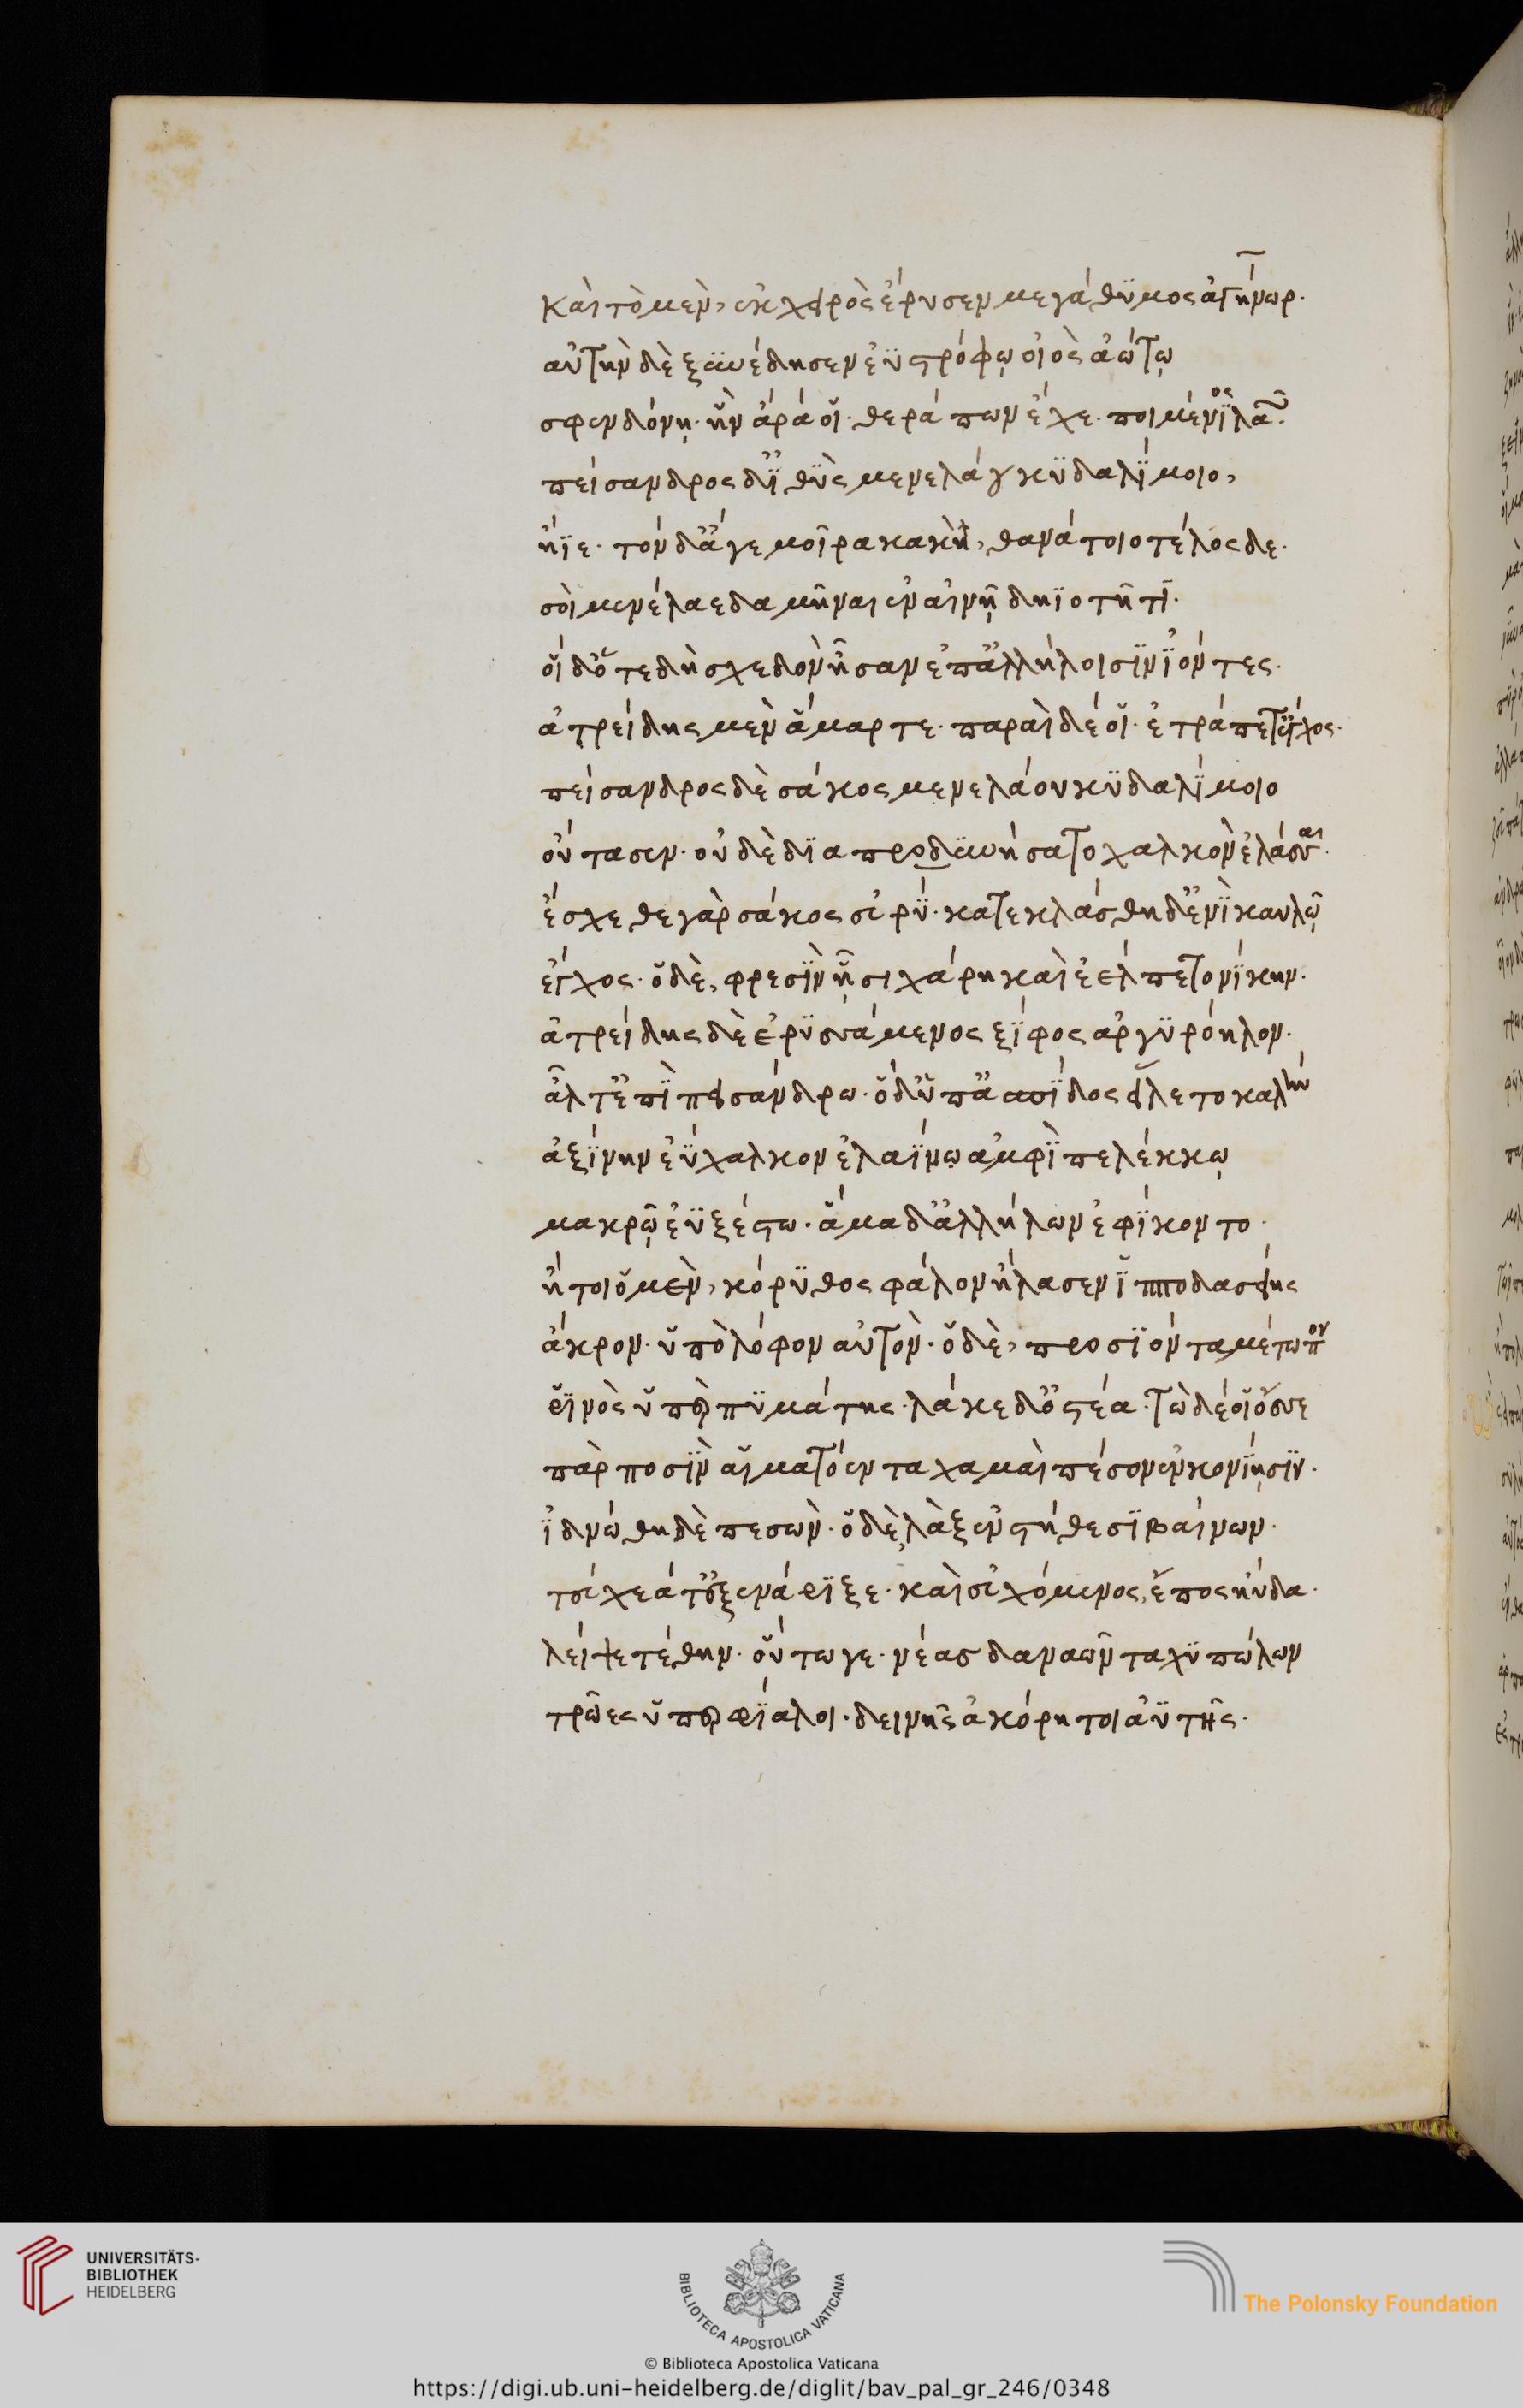 καὶ τὸ μὲν, ἐκ χειρὸς ἔρυσεν μεγάθϋμος ἀγήνωρ.
αὐτὴν δὲ ξϋνέδησεν ἐϋστρόφῳ οἰὸς ἀώτῳ
σφενδόνῃ· ἣν ἄρά οἵ. θεράπων ἔχε. ποιμένϊ λαῶν.
πείσανδρος δ' ἰ̈θὺ̈ς μενελάου κϋδαλί̈μοιο,
ἤϊε. τὸν δ' ἆγε μοῖρα κακὴ, θανάτοιο τέλος δε.
σοὶ μενέλαε δαμῆναι ἐν αἰνῇ δηϊοτῆτϊ.
οἱ δ' ὅτε δὴ σχεδὸν ἦσαν ἐπ' ἀλλήλοισϊν ἰ̈όντες.
ἀτρείδης μὲν ἅμαρτε. παραὶ δέ οἱ. ἐτράπετ' ἔγχος.
πείσανδρος δὲ σάκος μενελάου κϋδαλί̈μοιο
οὔτασεν. οὐδὲ δϊαπρο δϋνήσατο χαλκὸν ἐλάσσαι.
ἔσχεθε γὰρ σάκος εὐρύ̈. κατεκλάσθη δ' ἐνὶ̈ καυλῷ
ἔγχος. ὁ δὲ, φρεσὶ̈ν ᾗσι χάρη καὶ ἐέλπετο νίκην.
ἀτρείδης δὲ ἐρϋσσάμενος ξί̈φος ἀργϋρόηλον.
ἆλτ' ἐπὶ̈ πεισάνδρω. ὁ δ' ὑπ' ἀσπί̈δος εἵλετο καλὴν
ἀξί̈νην ἐΰχαλκον ἐλαΐνῳ ἀμφὶ̈ πελέκκῳ
μακρῷ ἐϋξέστω. ἅμα δ' ἀλλήλων ἐφί̈κοντο.
ἤτοι ὁ μὲν, κόρϋθος φάλον ἤλασεν ἱ̈πποδασείης
ἄκρον. ὑπὸ λόφον αὐτὸν. ὁ δὲ, προσϊόντα μέτωπον
ῥϊνὸς ὑπὲρ πϋμάτης. λάκε δ' ὀστέα. τὼ δέ οἱ ὄσσε
πὰρ ποσὶ̈ν αἱματόεντα χαμαὶ πέσον ἐν κονί̈ῃσϊν.
ἰ̈δνώθη δὲ πεσὼν. ὁ δὲ, λὰξ ἐν στήθεσϊ βαίνων.
τεύχεά τ' ἐξενάριξε. καὶ εὐχόμενος, ἔπος ηὔδα.
λείψετέ θην. οὕτω γε. νέας δαναῶν ταχϋπώλων
τρῶες ὑπερφί̈αλοι. δεινῆς ἀκόρητοι ἀϋτῆς.
UNIVERSITÄTS-
BIBLIOTHEK
HEIDELBERG
BIBLIOTECA APOSTOLICA VATICANA
The Polonsky Foundation
© Biblioteca Apostolica Vaticana
https://digi.ub.uni-heidelberg.de/diglit/bav_pal_gr_246/0348